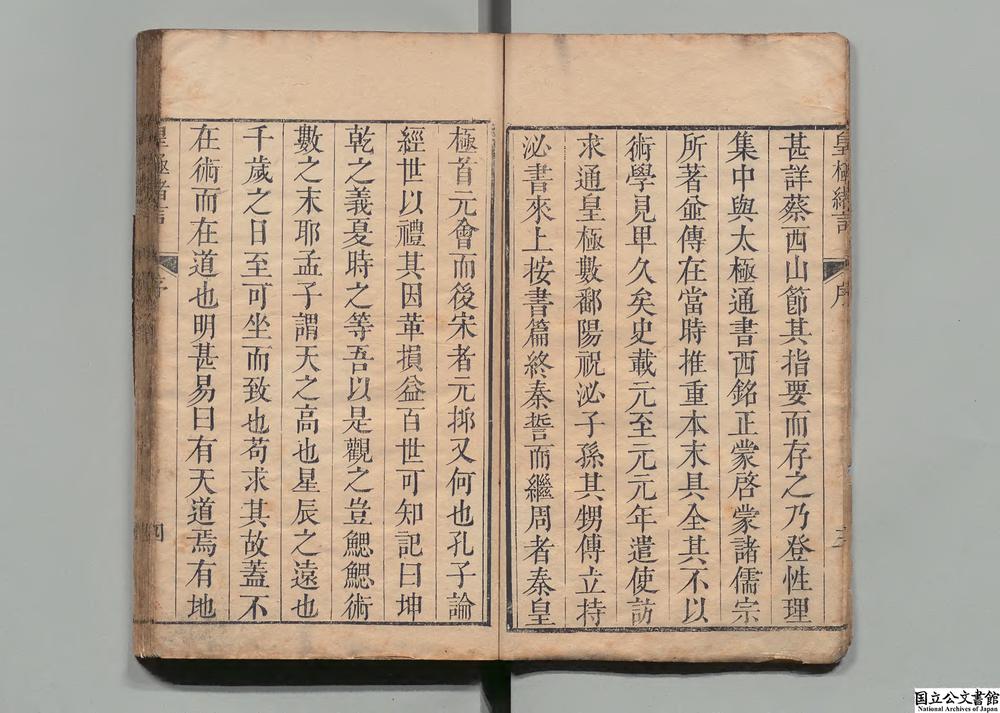 皇極緒言
序
三
甚詳蔡西山節其指要而存之乃登性理
集中與太極通書西銘正蒙啓蒙諸儒宗
所著並傳在當時推重本末具全其不以
術學見卑久矣史載元至元元年遣使訪
求通皇極數鄱陽祝泌子孫其甥傅立持
泌書來上按書篇終秦誓而繼周者秦皇
極首元會而後宋者元抑又何也孔子論
經世以禮其因革損益百世可知記曰坤
乾之義夏時之等吾以是觀之豈鰓鰓術
數之末耶孟子謂天之高也星辰之遠也
千歲之日至可坐而致也苟求其故蓋不
在術而在道也明甚易曰有天道焉有地
皇極緒言
序
四
国立公文書館
National Archives of Japan